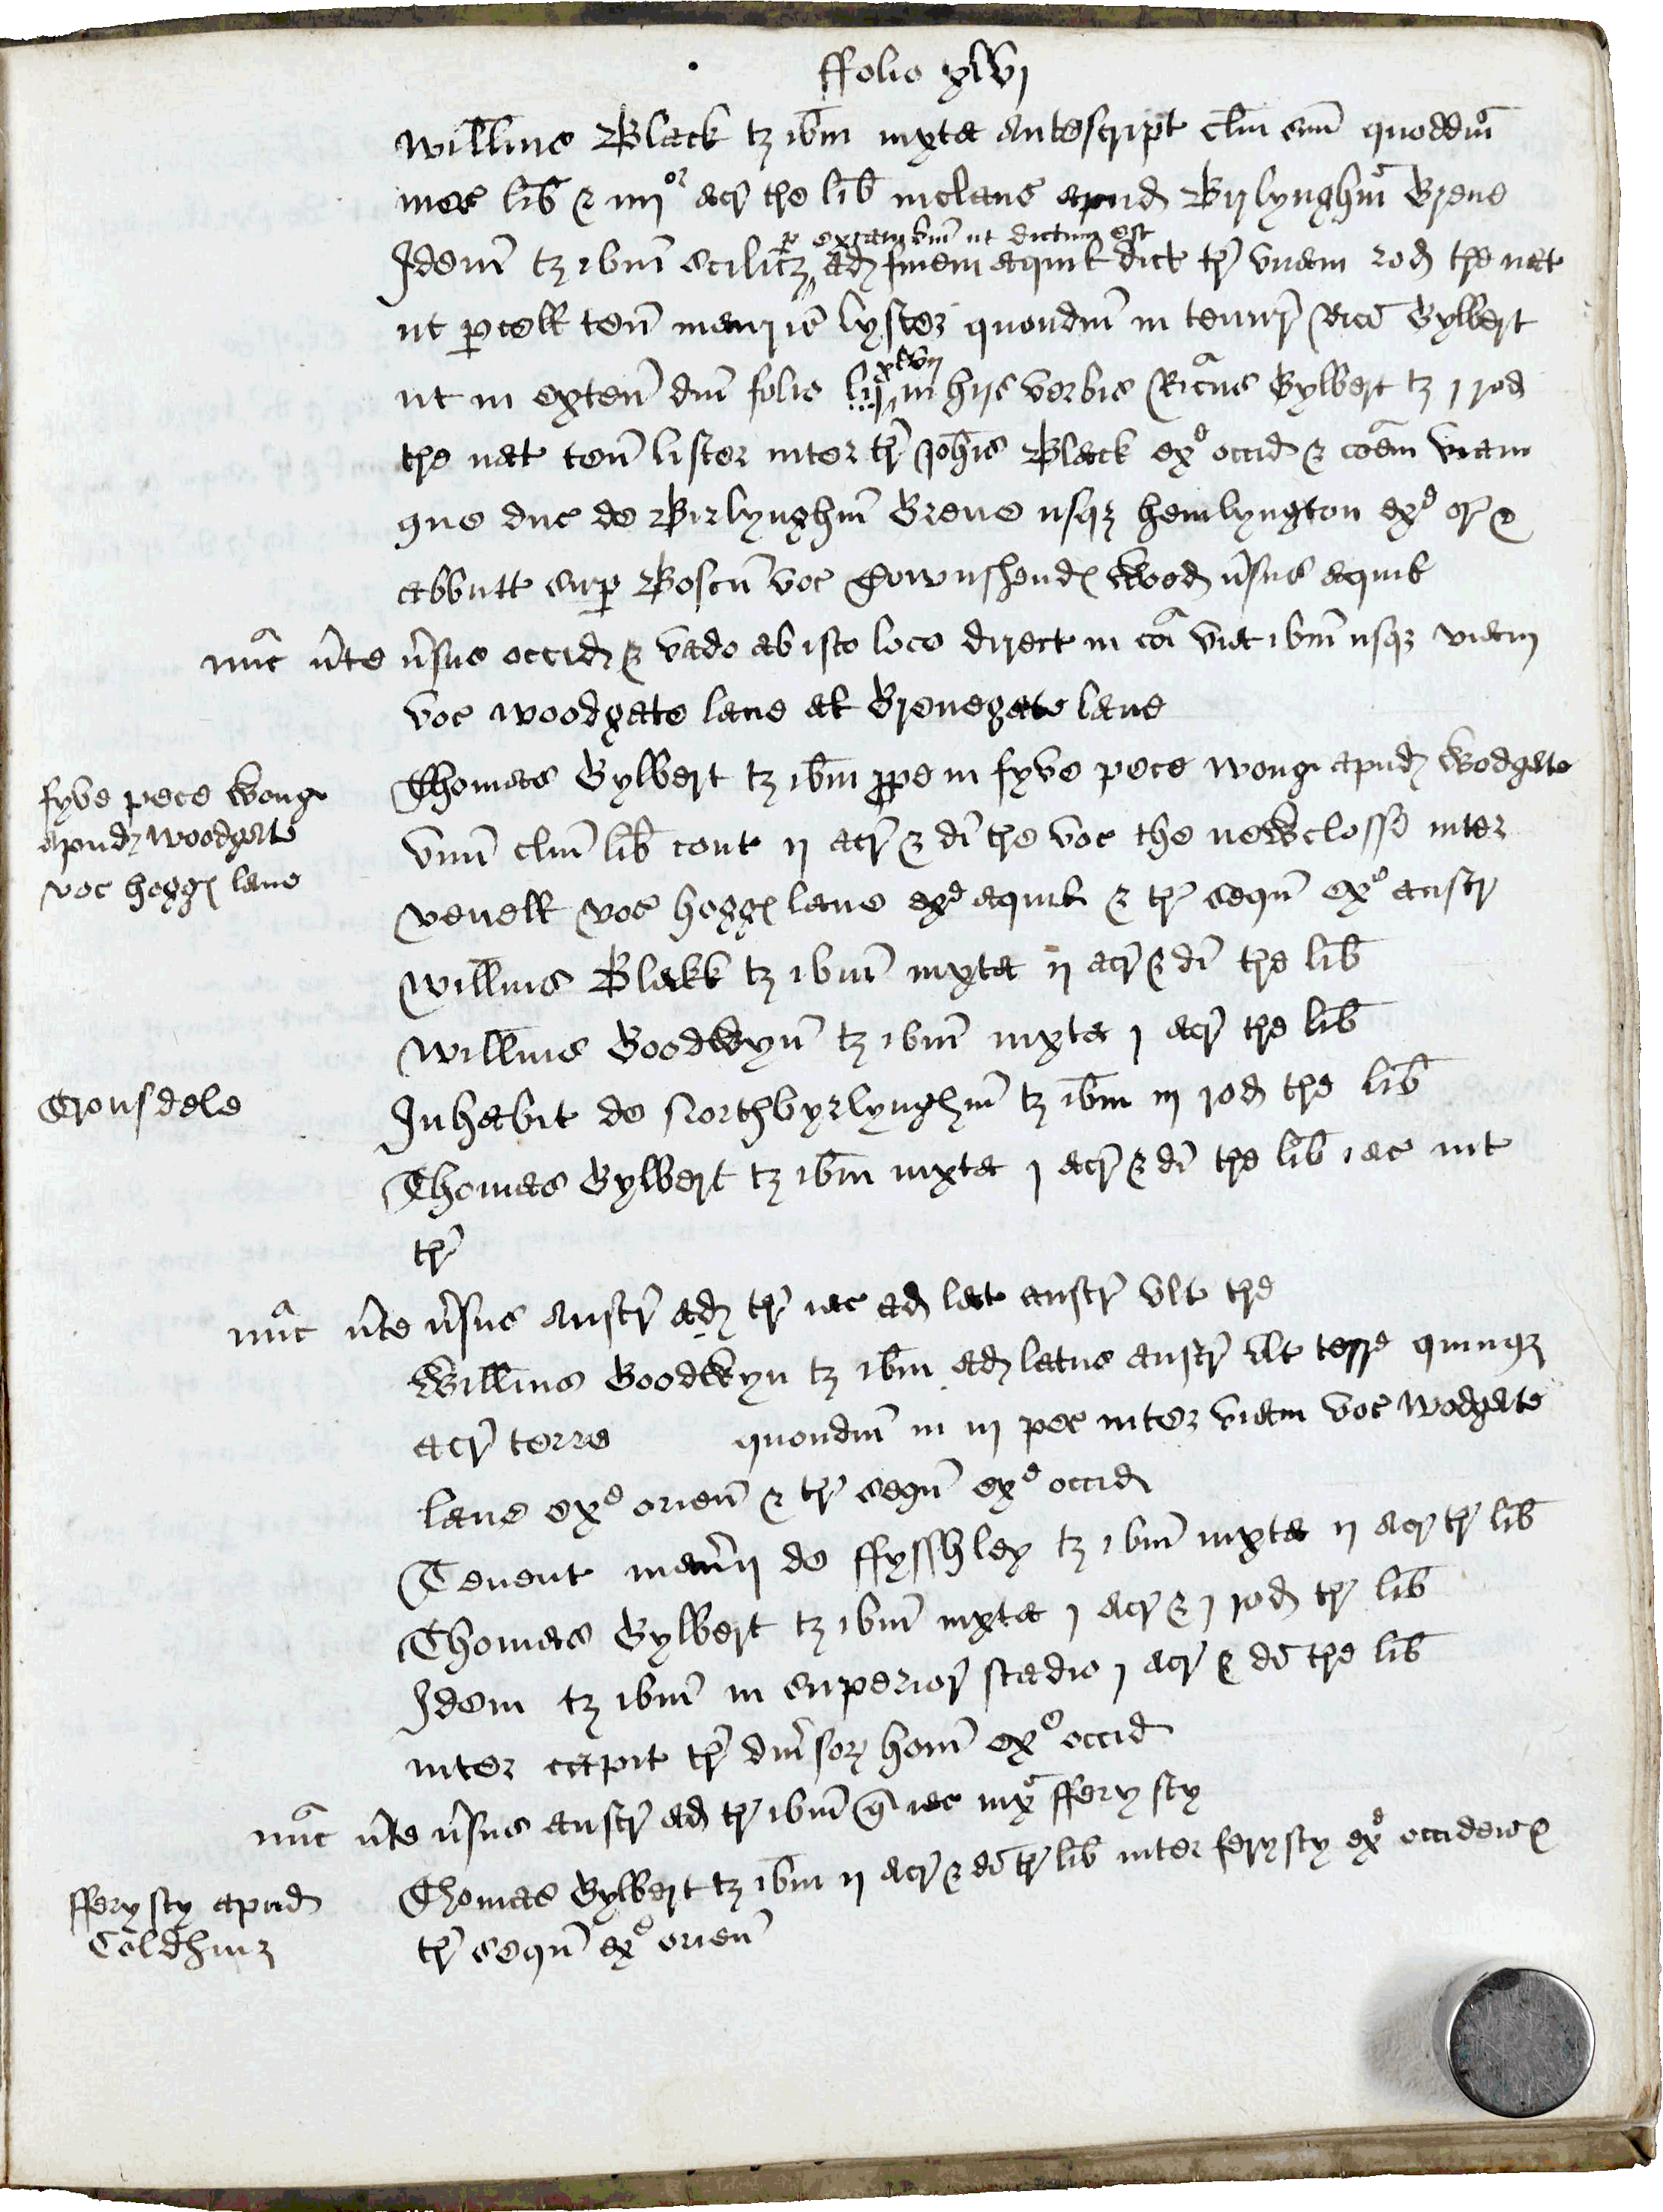 ffolio xlvj
Willms Black tz ibm iuxta antescript clm suu quoddm
mes lib & iiijor acr tre lib inclaus apud Byrlynghm Grene
p excambiu ut dictum est
Idem tz ibm scilicz ad finem aquil dict tr unam rod tre nat
ut pcell ten manrie lyster quondm in tenur Ricd Gylbert
xlvij
ut in exten dni folio lij in hijs verbis Ricus Gylbert tz j rod
tre nat ten lister inter tr Johis Black ex occid & coem viam
que duc de Birlynghm Grene usqz hemlyngton ex or &
abbutt sup Boscu voc Townshend Wood vsus aquil
nuc vte vsus occid & vado ab isto loco direct in coi via ibm usqz viam
voc woodgate lane al Grenegate lane
fyve pece wong
apud woodgate
voc hoggs lane
Thomas Gylbert tz ibm ppe in fyve pece wong apud Wodgate
unu clm lib cont ij acr & di tre voc the newclosse inter
venell voc hoggs lane ex aquil & tr sequn ex austr
Willms Blakk tz ibm iuxta ij acr & di tre lib
Willms Goodwyn tz ibm iuxta j acr tre lib
Crousdele
Inhabit de Northbyrlynghm tz ibm iij rod tre lib
Thomas Gylbert tz ibm iuxta j acr & di tre lib iac int
tr
nuc vte vsus austr ad tr iac ad lat austr ult tre
Willms Goodwyn tz ibm ad latus austr ult terre quinqz
acr terre quondm in iij pec inter viam voc Wodgate
lane ex orien & tr sequn ex occid
Tenent manrij de ffysshley tz ibm iuxta ij acr tr lib
Thomas Gylbert tz ibm iuxta j acr & j rod tr lib
Idem tz ibm in superior stadio j acr & di tre lib
inter capit tr diusor hom ex occid
nuc vte vsus austr ad tr ibm q iac iux ffery sty
ffery sty apud
Coldhmz
Thomas Gylbert tz ibm ij acr & di tr lib inter ferysty ex occiden &
tr sequn ex orien